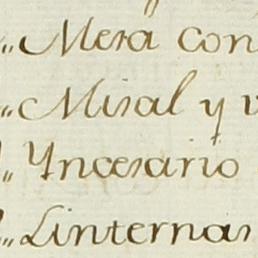 „ Mesa con
„ Misal y
„ Yncesario
„ Linternas